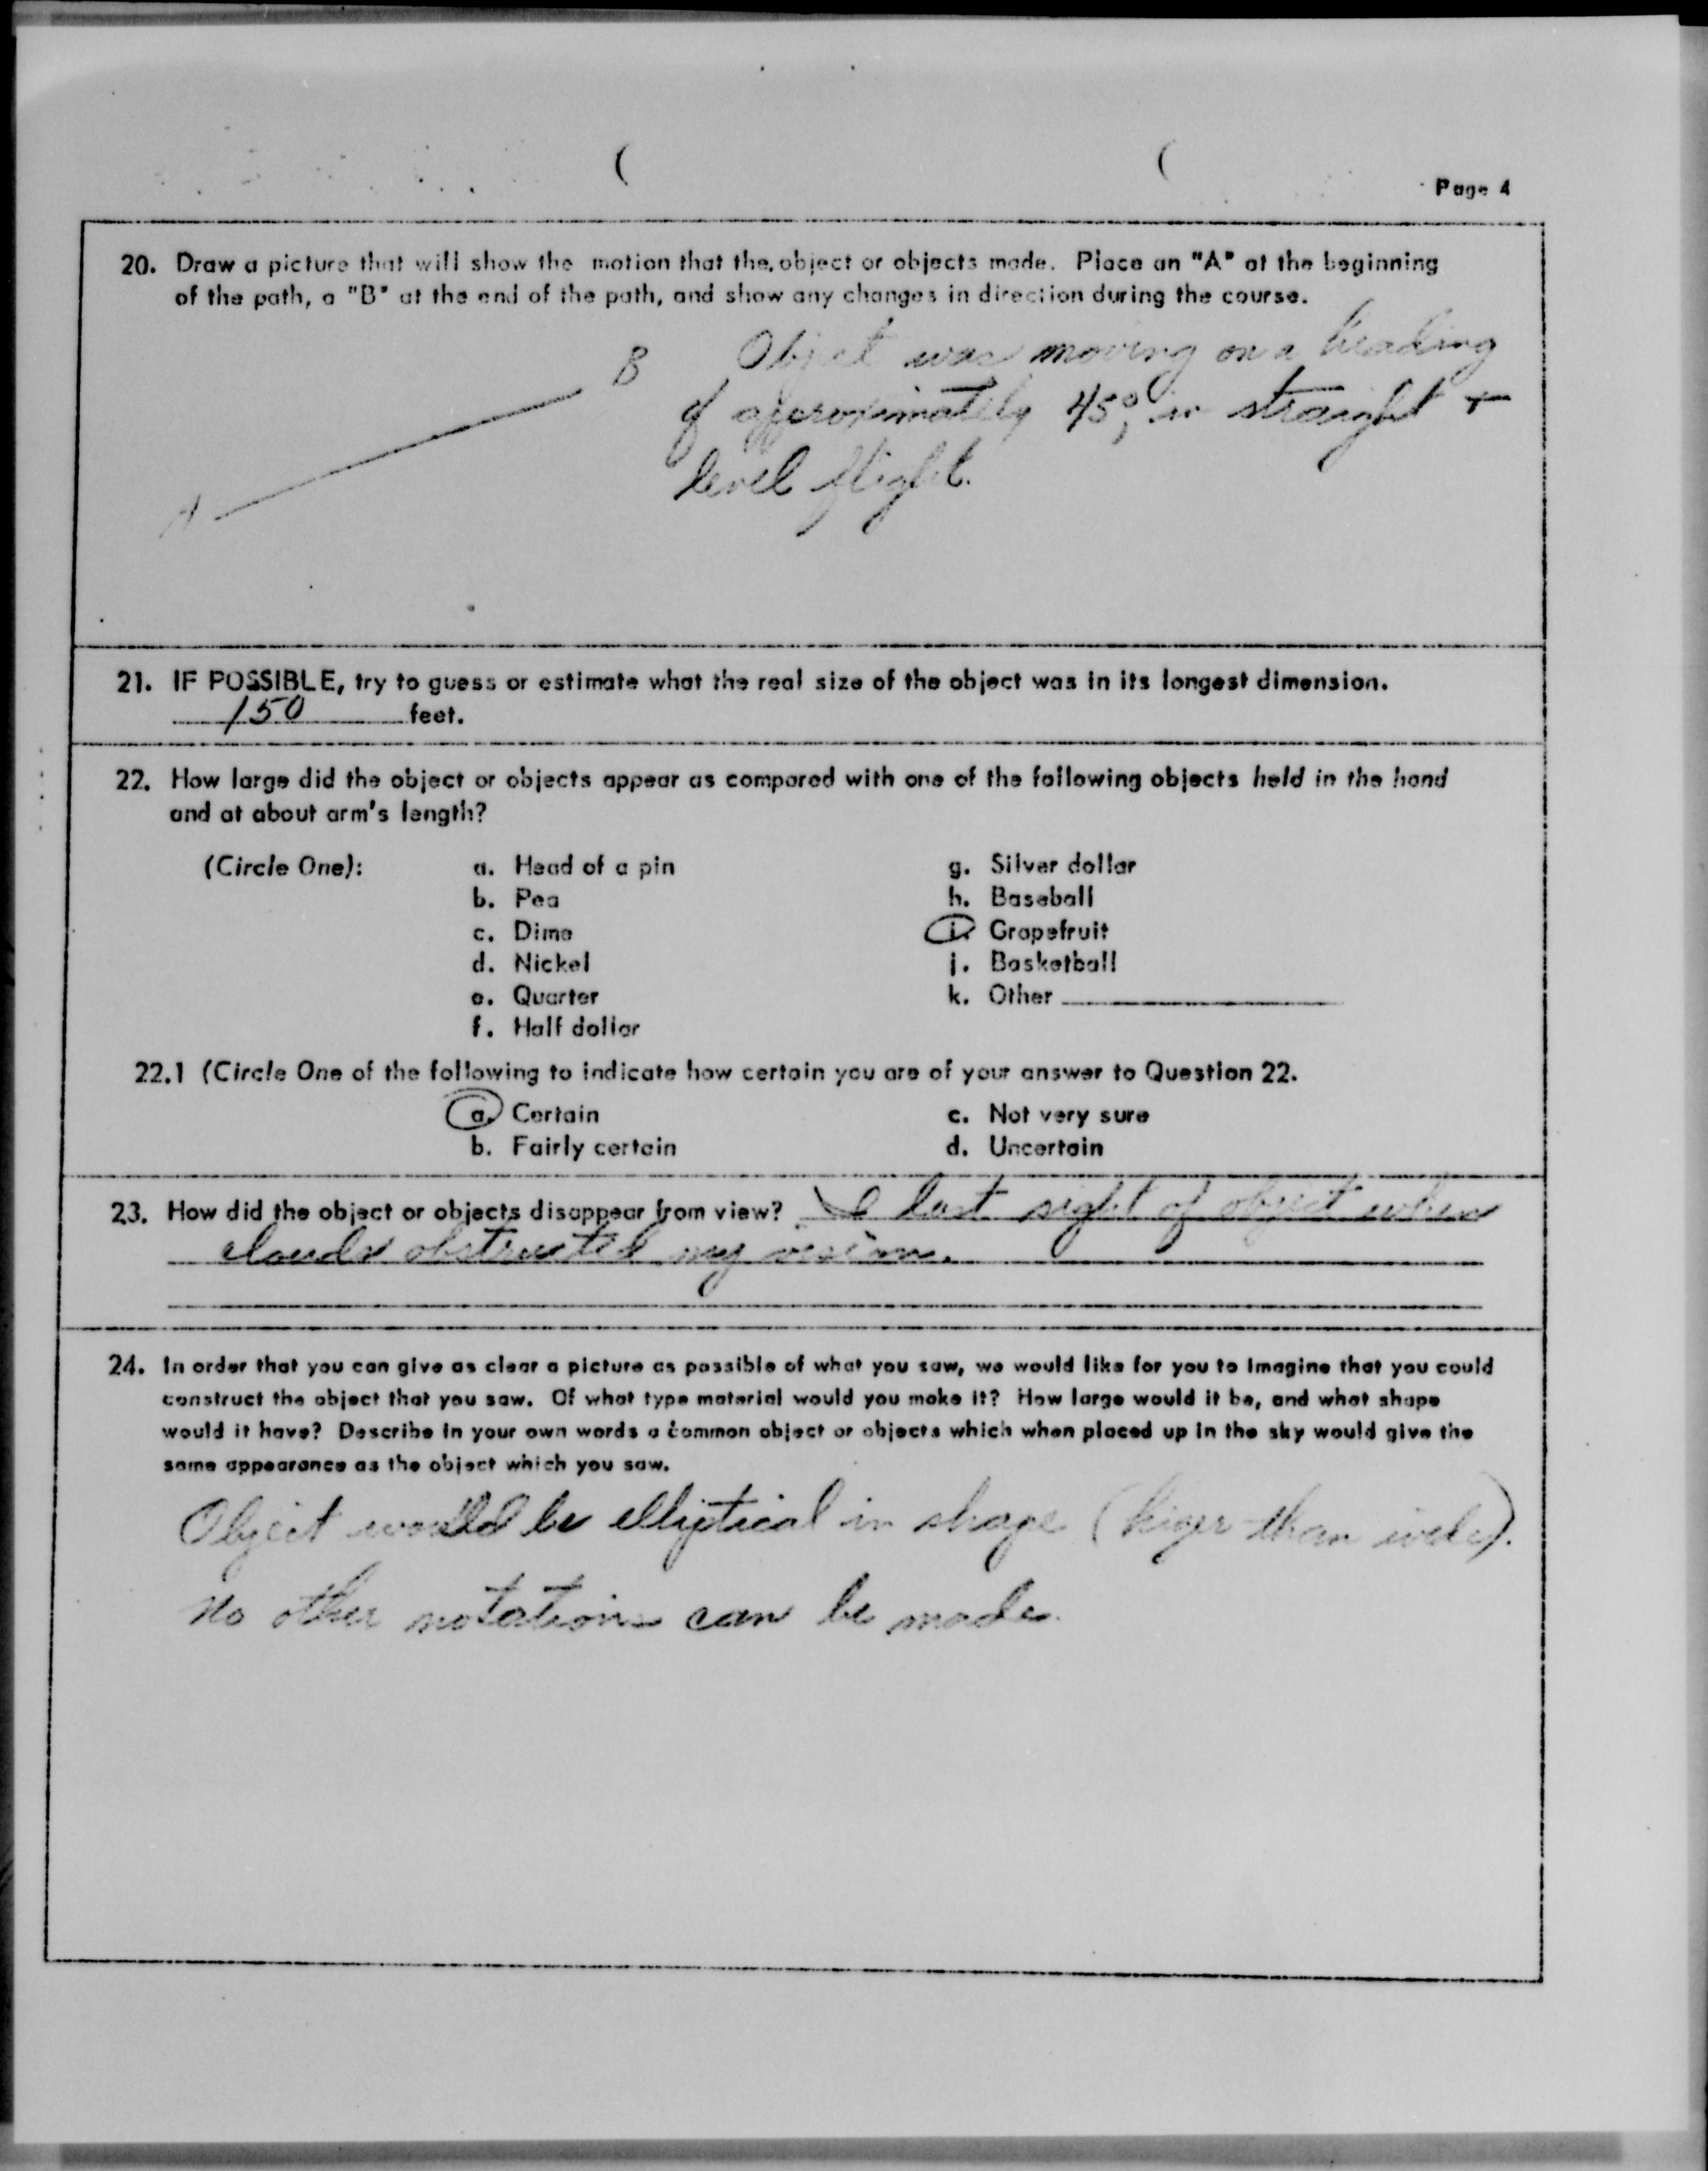 Page 4
20. Draw a picture that will show the motion that the object or objects made. Place an "A" at the beginning
of the path, a "B" at the end of the path, and show any changes in direction during the course.
B
A
Object was moving on a heading
of approximately 45°, in straight +
level flight.
21. IF POSSIBLE, try to guess or estimate what the real size of the object was in its longest dimension.
150 feet.
22. How large did the object or objects appear as compared with one of the following objects held in the hand
and at about arm's length?
(Circle One):
a. Head of a pin
b. Pea
c. Dime
d. Nickel
e. Quarter
f. Half dollar
g. Silver dollar
h. Baseball
i. Grapefruit
j. Basketball
k. Other
22.1 (Circle One of the following to indicate how certain you are of your answer to Question 22.
a. Certain
b. Fairly certain
c. Not very sure
d. Uncertain
23. How did the object or objects disappear from view? I lost sight of object when
clouds obstructed my vision.
24. In order that you can give as clear a picture as possible of what you saw, we would like for you to imagine that you could
construct the object that you saw. Of what type material would you make it? How large would it be, and what shape
would it have? Describe in your own words a common object or objects which when placed up in the sky would give the
same appearance as the object which you saw.
Object would be elliptical in shape ( than wide).
No other notations can be made.